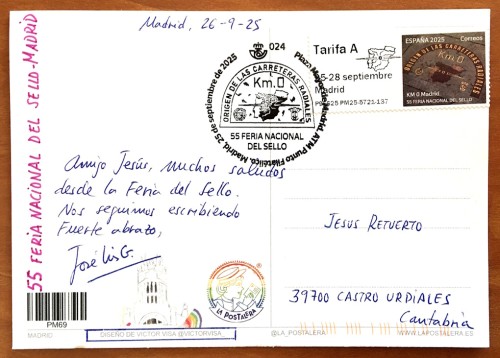 Madrid, 26-9-25
55 FERIA NACIONAL DEL SELLO-MADRID
024
Plaza Mayor de Madrid, ATM Punto Filatélico, Madrid, 25 de septiembre de 2025
ORIGEN DE LAS CARRETERAS RADIALES
Km.0
55 FERIA NACIONAL
DEL SELLO
Tarifa A
25-28 septiembre
Madrid
ESPAÑA 2025 Correos
ORIGEN DE LAS CARRETERAS RADIALES
Km.0
KM 0 Madrid
55 FERIA NACIONAL DEL SELLO
Amigo Jesús, muchos saludos
desde la Feria del Sello.
Nos seguimos escribiendo
Fuerte abrazo,
José Luis G.
JESUS RETUERTO
39700 CASTRO URDIALES
Cantabria
LA POSTALERA
PM69
MADRID
DISEÑO DE VICTOR VISA @VICTORVISA_
@LA_POSTALERA
WWW.LAPOSTALERA.ES